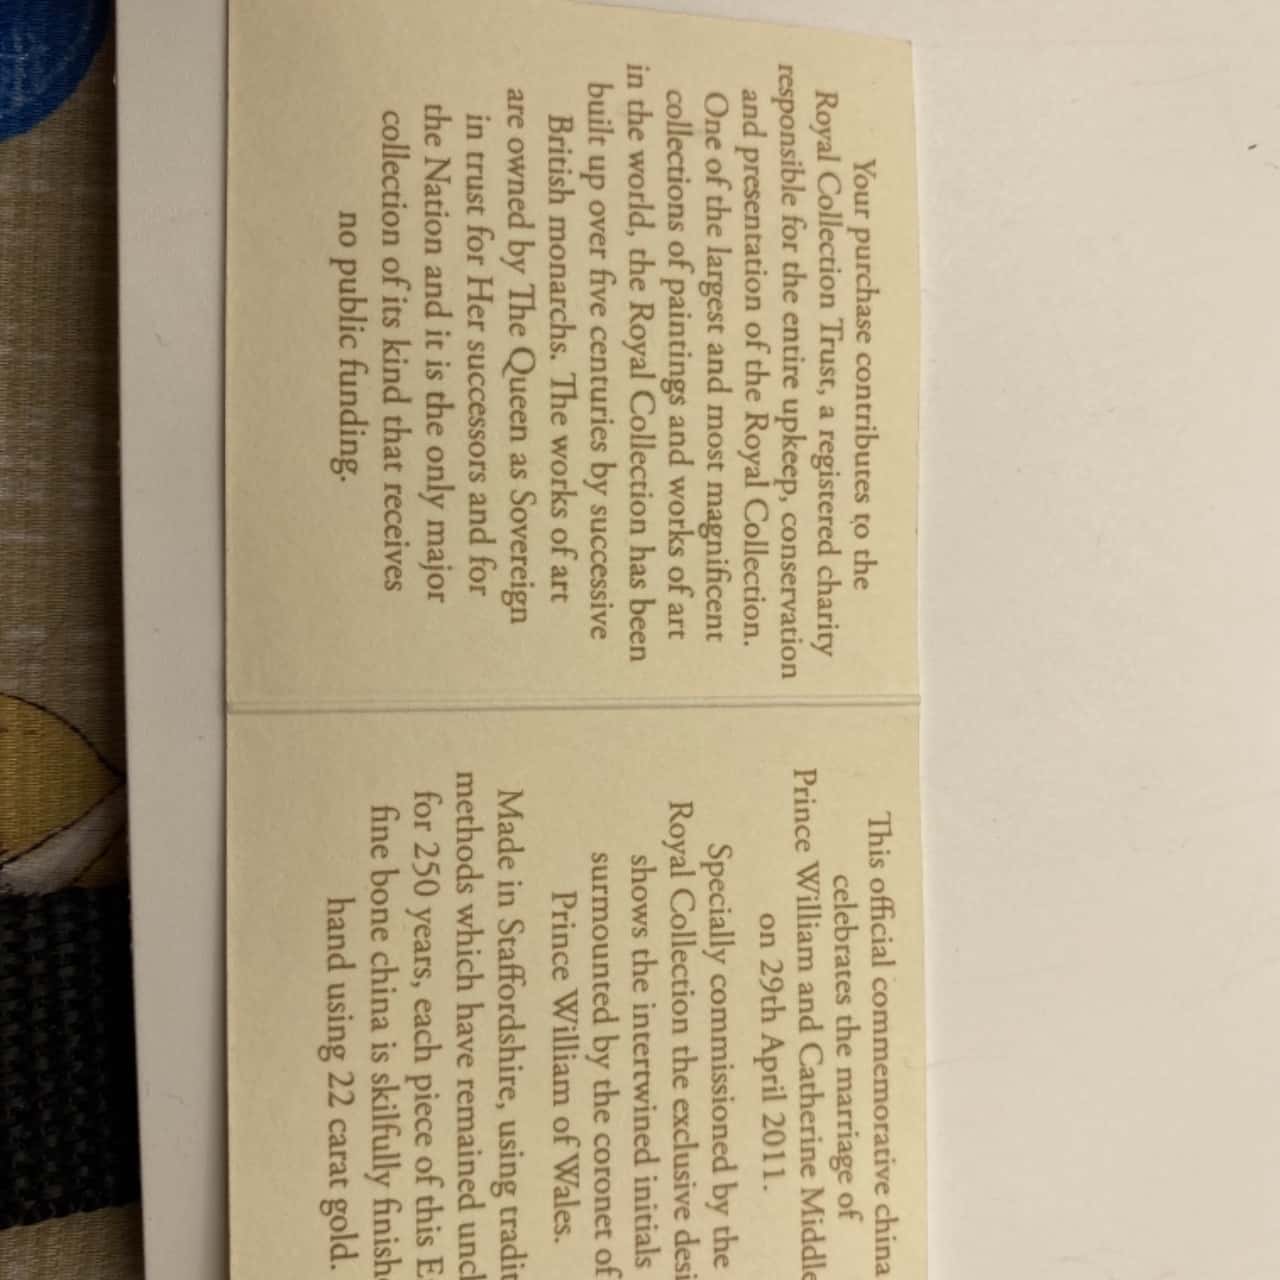 Your purchase contributes to the
Royal Collection Trust, a registered charity
responsible for the entire upkeep, conservation
and presentation of the Royal Collection.
One of the largest and most magnificent
collections of paintings and works of art
in the world, the Royal Collection has been
built up over five centuries by successive
British monarchs. The works of art
are owned by The Queen as Sovereign
in trust for Her successors and for
the Nation and it is the only major
collection of its kind that receives
no public funding.
This official commemorative china
celebrates the marriage of
Prince William and Catherine Middle
on 29th April 2011.
Specially commissioned by the
Royal Collection the exclusive desi
shows the intertwined initials
surmounted by the coronet of
Prince William of Wales.
Made in Staffordshire, using tradit
methods which have remained uncl
for 250 years, each piece of this E
fine bone china is skilfully finish
hand using 22 carat gold.